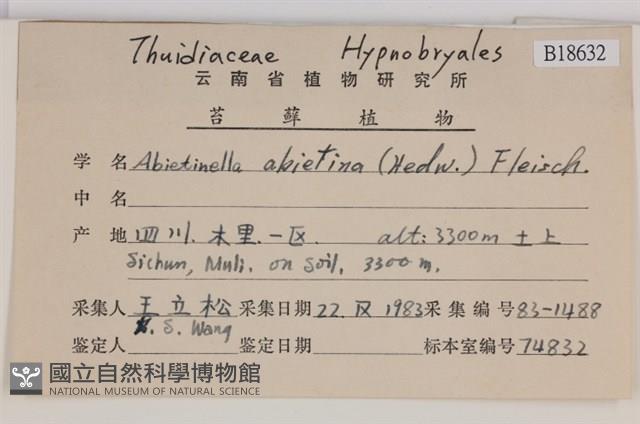 Thuidiaceae Hypnobryales B18632
云南省植物研究所
苔藓植物
学名 Abietinella abietina (Hedw.) Fleisch.
中名
产地 四川. 木里. 一区. alt: 3300m 土上
Sichun, Muli. on soil, 3300 m.
采集人 王立松 采集日期 22. IV 1983 采集编号 83-1488
S. Wang
鉴定人 鉴定日期 标本室编号 74832
國立自然科學博物館
NATIONAL MUSEUM OF NATURAL SCIENCE